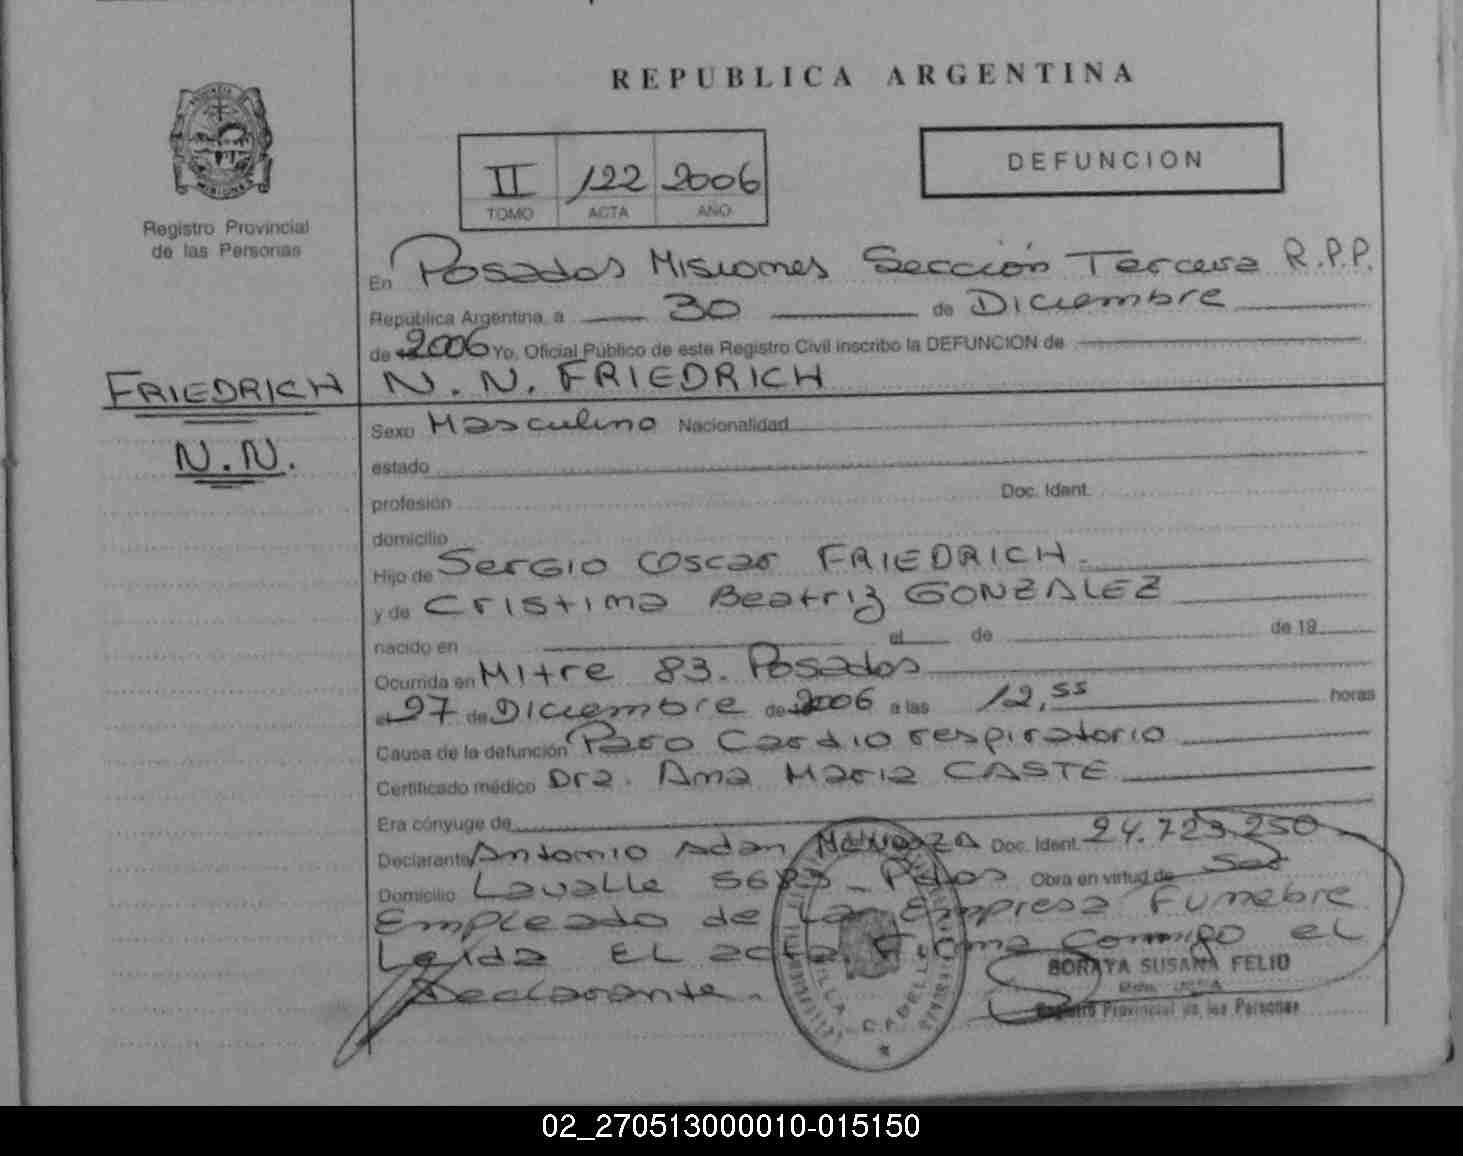 REPUBLICA ARGENTINA
Registro Provincial
de las Personas
II 122 2006
TOMO ACTA AÑO
DEFUNCION
En Posadas Misiones Sección Tercera R.P.P.
República Argentina, a 30 de Diciembre
de 2006 Yo, Oficial Público de este Registro Civil inscribo la DEFUNCION de
FRIEDRICH
N.N.
N. N. FRIEDRICH
Sexo Masculino Nacionalidad
estado
profesión Doc. Ident.
domicilio
Hijo de Sergio Oscar FRIEDRICH
y de Cristina Beatriz GONZALEZ
nacido en el de de 19
Ocurrida en Mitre 83. Posadas
el 27 de Diciembre de 2006 a las 12,55 horas
Causa de la defunción Paro Cardio respiratorio
Certificado médico Dra. Ana Maria CASTE
Era cónyuge de
Declarante Antonio Adan Doc. Ident. 24.723.250
Domicilio Lavalle Pdas Obra en virtud de Ser
Empleado de La Empresa Funebre
Leida EL acta Firma Conmigo el
Declarante.
VILLA CABELLO
SORAYA SUSANA FELIO
Registro Provincial de las Personas
02_270513000010-015150